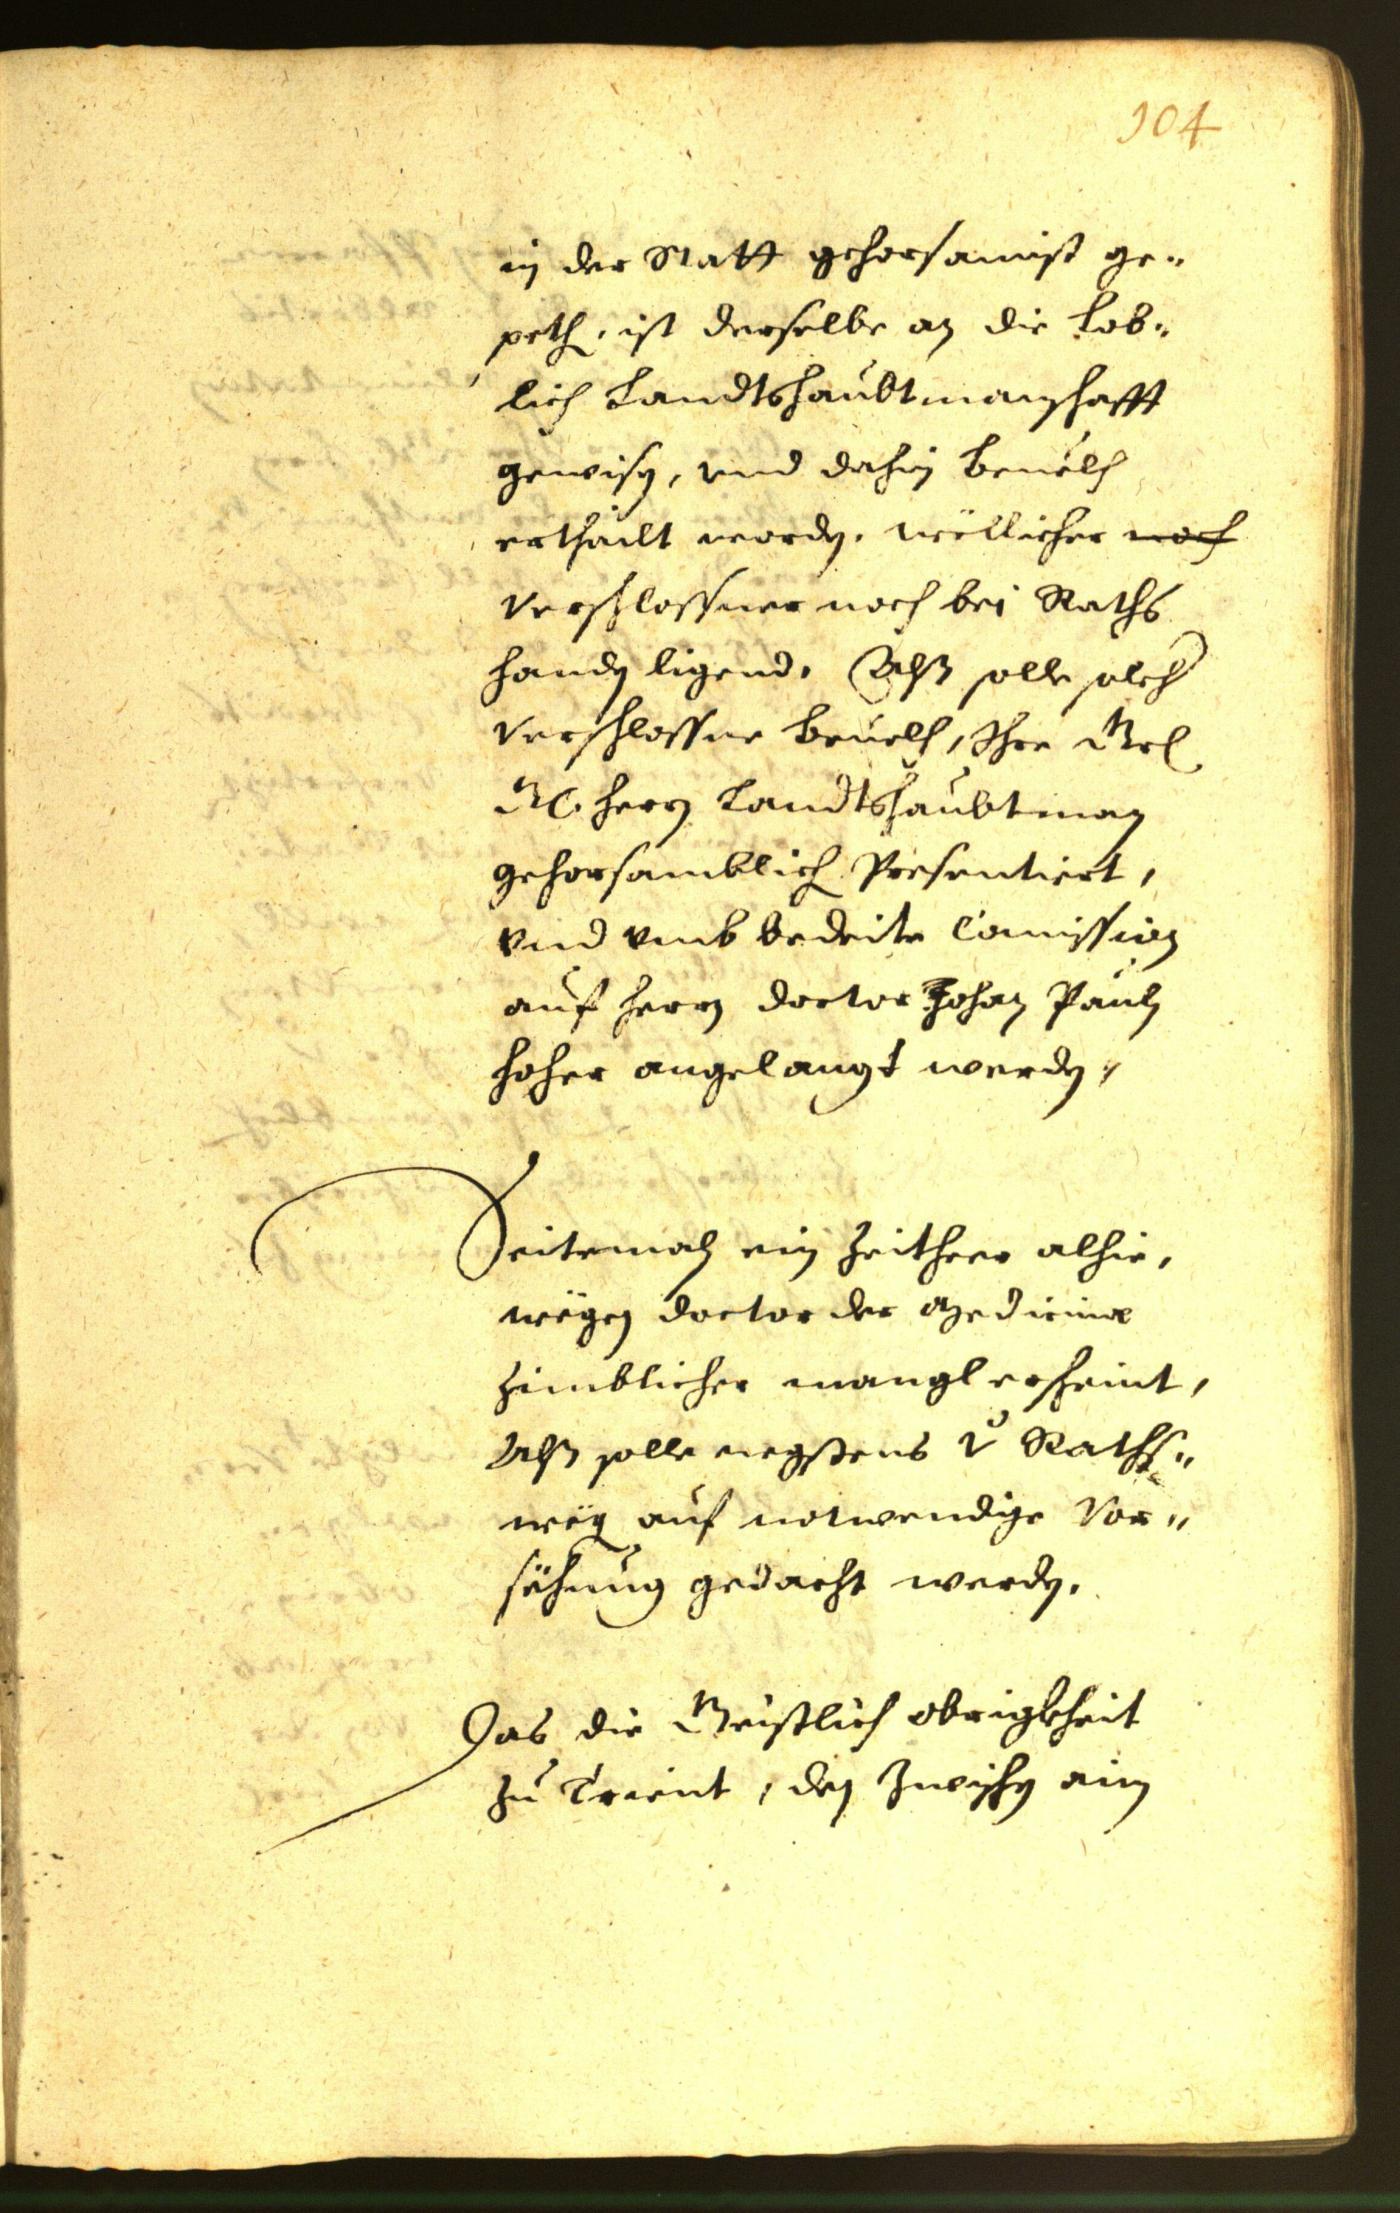 104
in der Statt gehorsamist ge-
peth, ist derselbe an die Lob-
lich Landtshaubtmanschafft
gewisen, vnd dahin beuelch
erthailt worden. wöllicher noch
verschlossner noch bei Raths
handen ligend. Alß solle solch
verschlossne beuelch, Ihre
herrn Landtshaubtman
gehorsamblich Presentiert,
vnd vmb bedeite Comission
auf herrn doctor Johan Pauln
hoher angelangt werden.
Seitemaln ein Zeithero alhie,
wëgen doctor der Medicina
zimblicher mangl erscheint,
Alß solle negstens v Raths-
wëgen auf notwendige Vor-
sëhung gedacht werden.
Das die Geistlich obrigkheit
zu Trient, den Zwischen ain